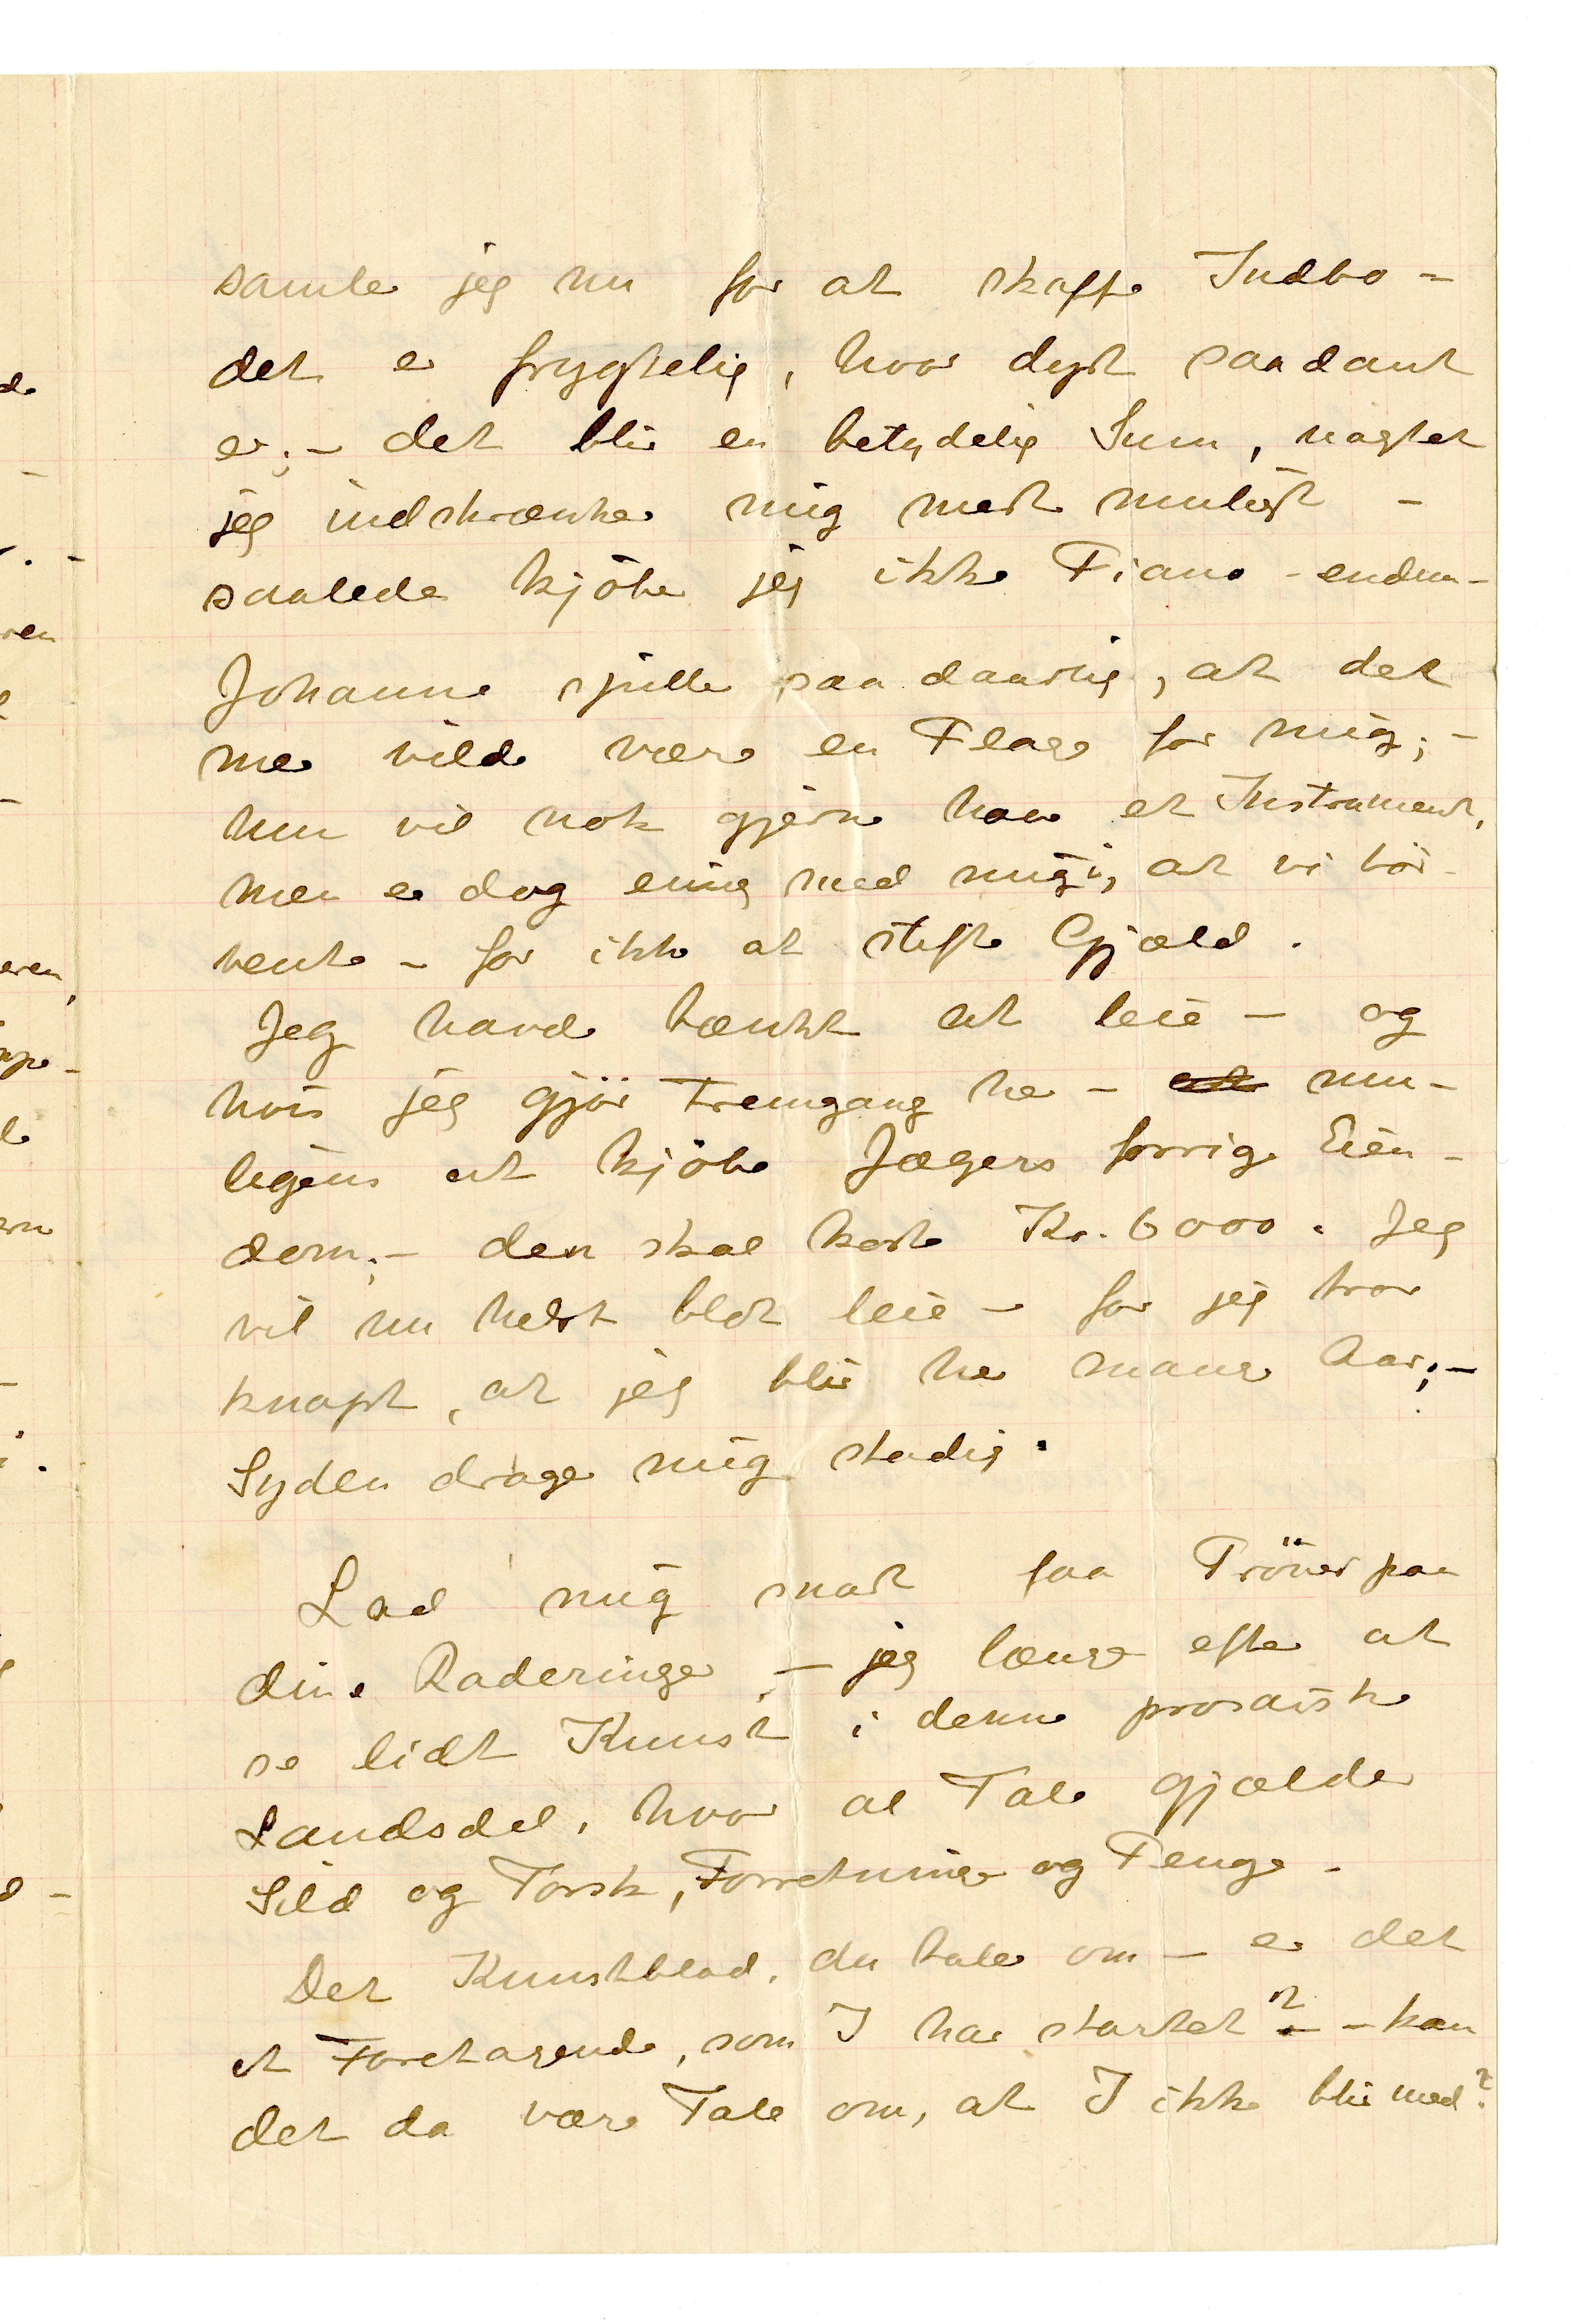 samler jeg nu for at skaffe Indbo –
det er frygtelig, hvor dyrt saadant
er; – det blir en betydelig Sum, uagtet
jeg indskrænker mig mest muligt –
saaledes kjöber jeg ikke Piano – endnu –
Johanne spiller saa daarlig, at det
mer vilde være en Plage for mig; –
hun vil nok gjerne have et Instrument,
men er dog enig med mig i, at vi bör
vente – for ikke at stifte Gjæld.
Jeg havde tænkt at leie – og
hvis jeg gjör Fremgang her – mu-
ligens at kjöbe Jægers forrige Eien-
dom; – den skal koste Kr. 6000. Jeg
vil nu helst blot leie – for jeg tror
knapt, at jeg blir her mange Aar; –
Syden drager mig stadig.
Lad mig snart faa Pröver paa
dine Raderinger – jeg længer efter at
se lidt Kunst i denne prosaiske
Landsdel, hvor al Tale gjælder
Sild og Torsk, Forretninger og Penge –
Det Kunstblad, du taler om – er det
et Foretagende, som I har startet? – kan
det da være Tale om, at I ikke blir med?